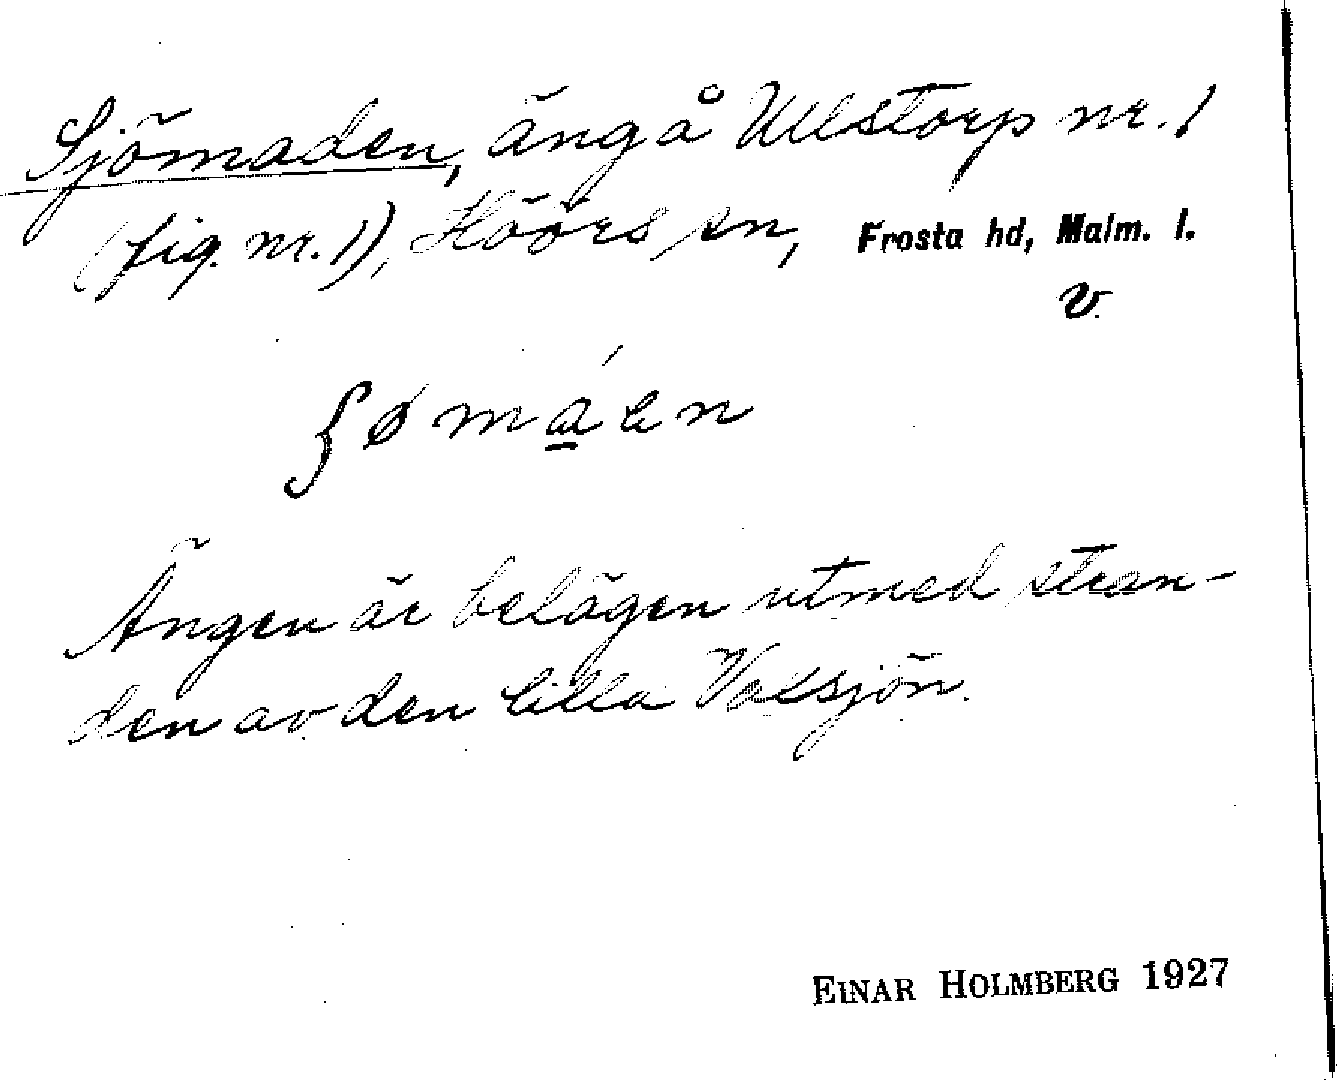 Sjömaden, äng å Ullstorp nr. 1
(fig. nr. 1), Höörs sn, Frosta hd, Malm. l.
v.
ʃømáen
Ängen är belägen utmed stran-
den av den lilla Vaxsjön.
EINAR HOLMBERG 1927